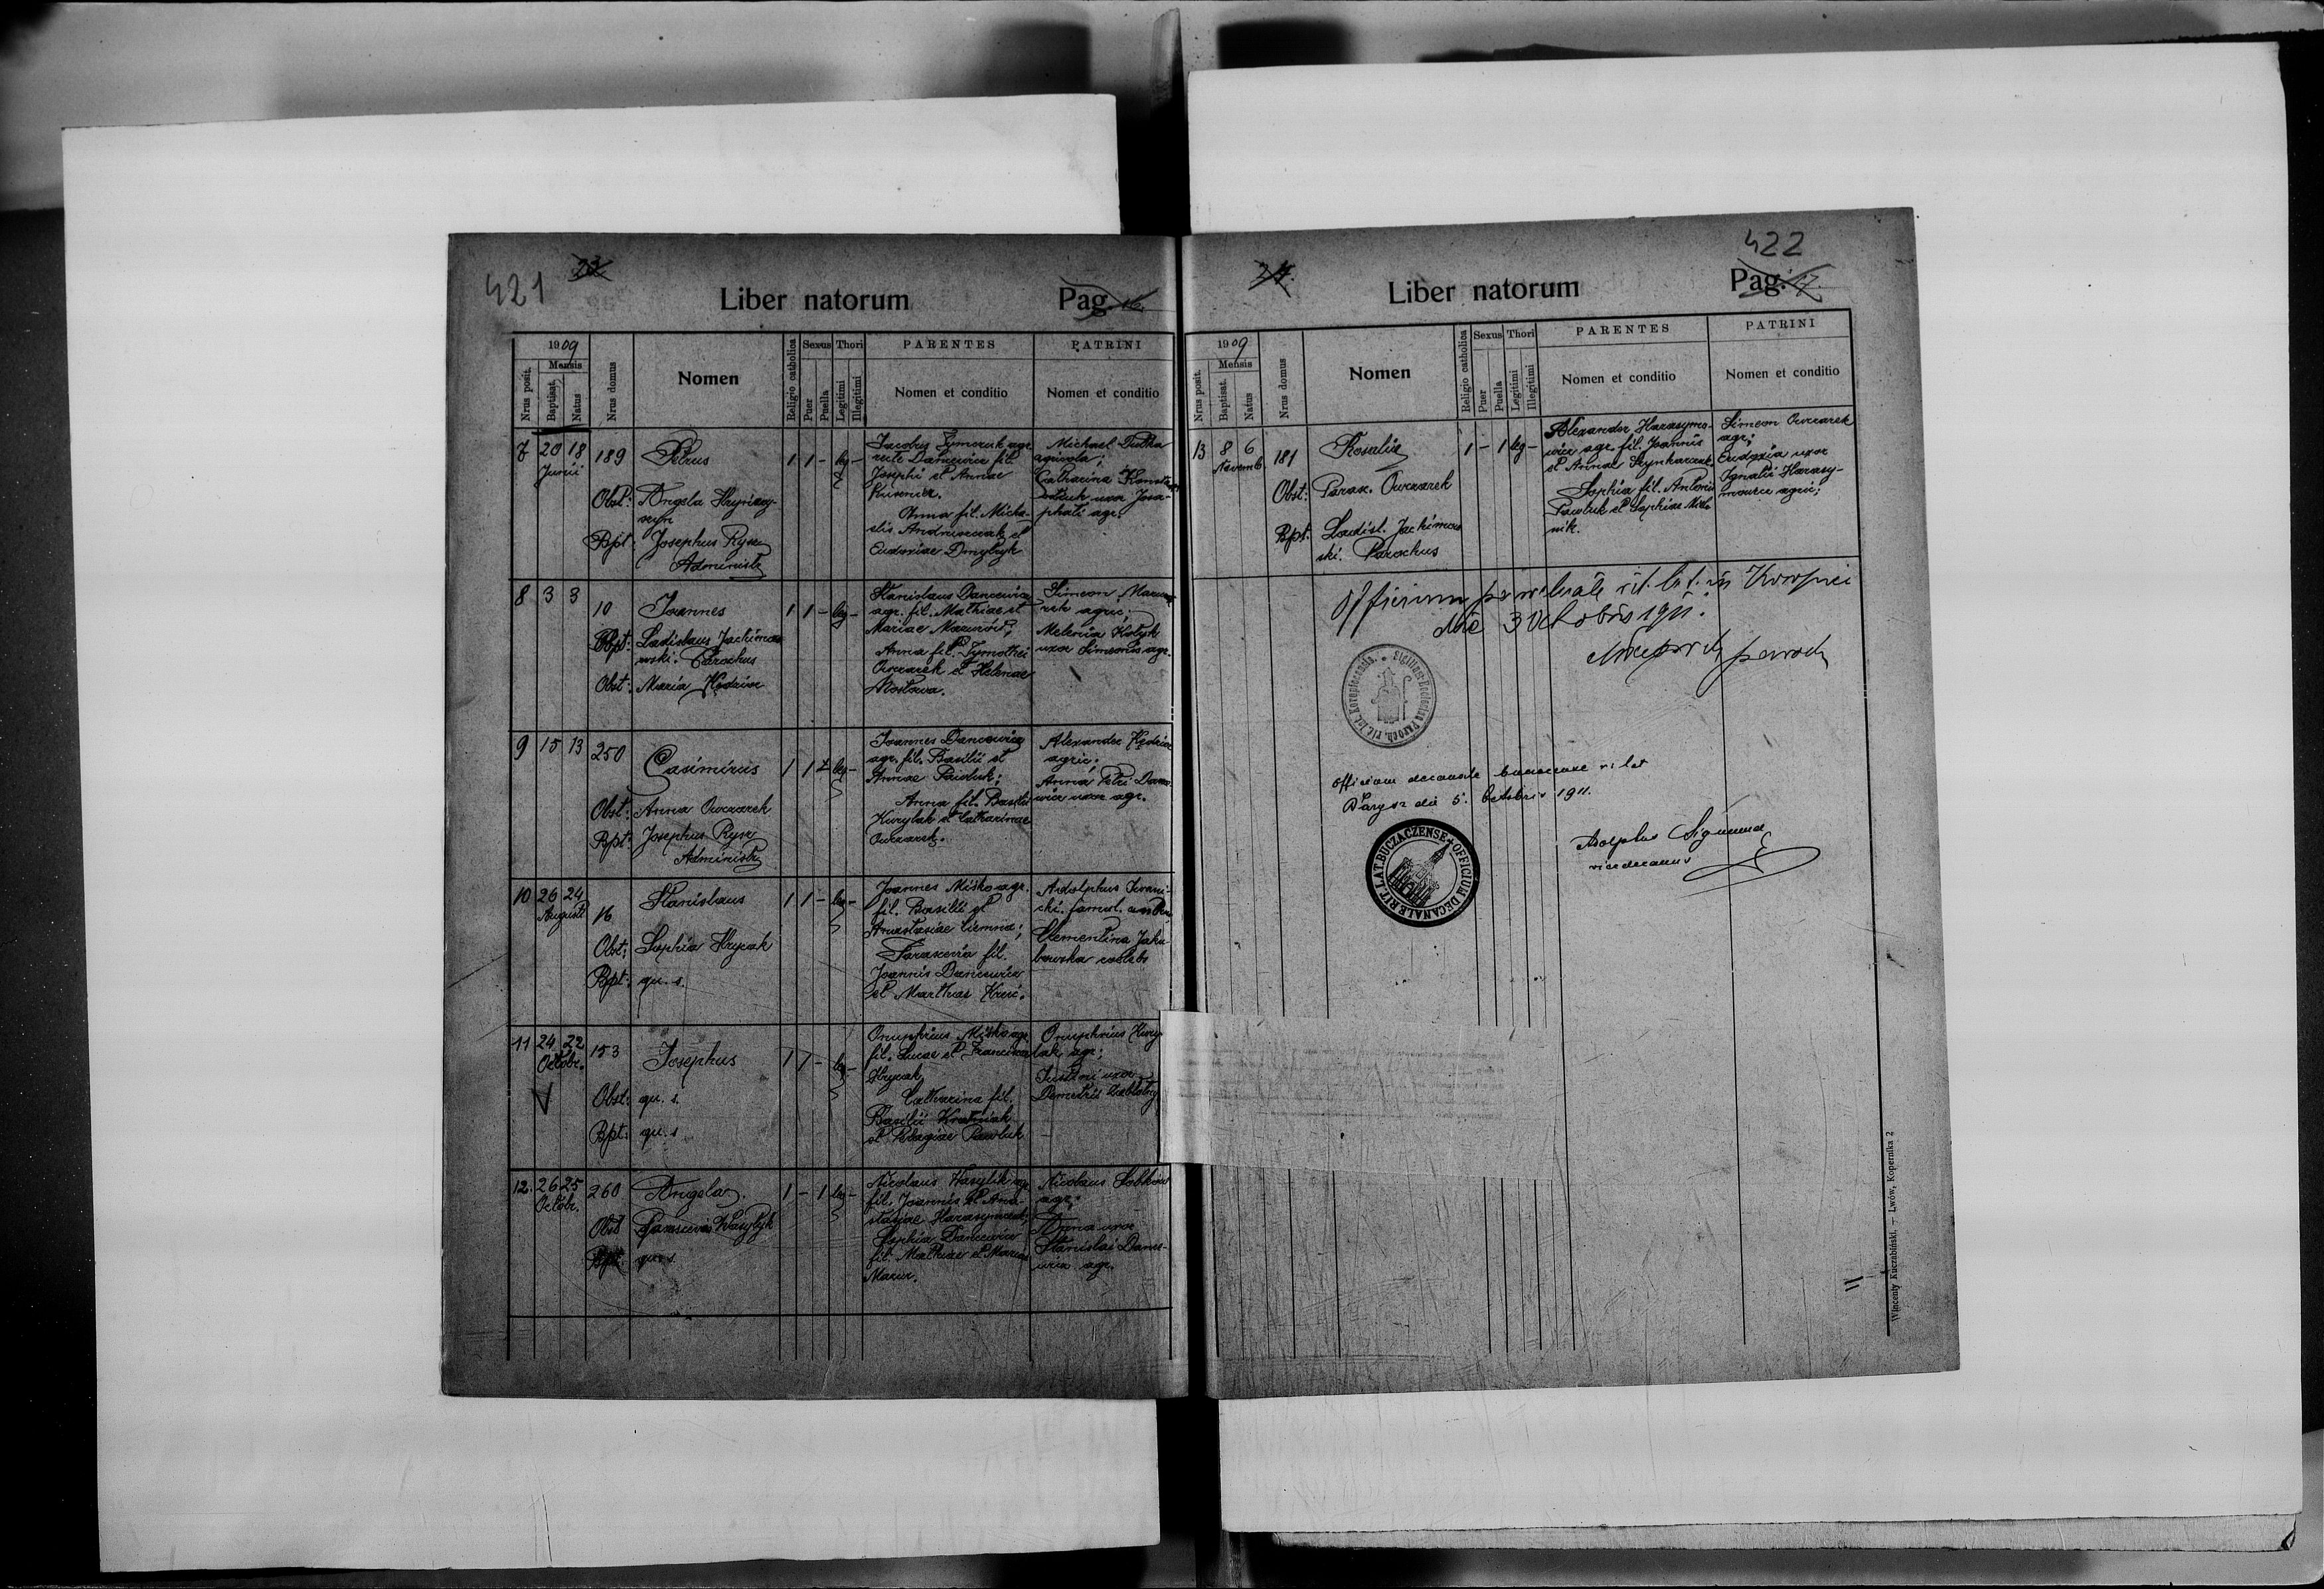 421
23.
Liber natorum
Pag. 16.
1909
Mensis
Nrus posit.
Baptisat.
Natus
Nrus domus
Nomen
Religio catholica
Sexus
Puer
Puella
Thori
Legitimi
Illegitimi
PARENTES
Nomen et conditio
PATRINI
Nomen et conditio
7 20 18 189 Petrus 1 1 - leg -
Junii
Obst: Angela
Bpt: Josephus Rysz
Administr
Jacobus Tymczuk agr.
recte Dancewicz fil.
Josephi et Annae
Kusznir.
Anna fil. Micha-
elis Andruszczak et
Eudoxiae Dmytryk
Michael Dutka
agricola;
Catharina
uxor Josa-
phati agr.
8 3 3 10 Joannes 1 1 - leg -
Bpt: Ladislaus Jachimow
wski. Parochus
Obst: Maria
Stanislaus Dancewicz
agr. fil. Mathiae et
Mariae
Anna fil. Tymothei
Owczarek et Helenae
Mostowa.
Simeon
agric.
Melania
uxor Simeonis agr.
9 15 13 250 Casimirus 1 1 - leg -
Obst: Anna Owczarek
Bpt: Josephus Rysz
Administr
Joannes Dancewicz
agr. fil. Basilii et
Annae
Anna fil. Basilii
Kurylak et Catharinae
Owczarek.
Alexander
agric.
Anna Petri Dance
wicz uxor agr.
10 26 24 16 Stanislaus 1 1 - leg -
Augusti
Obst: Sophia Hrycak
Bpt: qu. s.
Joannes Miśko agr.
fil. Basilii et
Anastasiae Ciemna;
Parascevia fil.
Joannis Dancewicz
et Marthae
Adolphus Iwani-
cki. famul.
Clementina Jaku
bowska caelebs
11 24 22 153 Josephus 1 1 - leg -
Octobr.
Obst: qu. s.
Bpt: qu. s.
Onuphrius Miśko agr.
fil. Lucae et Franciscae
Hrycak
Catharina fil.
Basilii
et Pelagiae Pawluk
Onuphrius Kury
lak agr;
uxor
Demetrii Zabłotny
12. 26 25 260 Angela. 1 - 1 leg -
Octobr.
Obst Parascevia Wasylyk
Bpt: qu. s.
Nicolaus Wasylik agr
fil. Joannis et Ana-
stasiae
Sophia Dancewicz
fil. Mathiae et Mariae
Mazur.
Nicolaus
agr;
Anna uxor
Stanislai Dance-
wicz agr.
422
24.
Liber natorum
Pag. 17.
1909
Mensis
Nrus posit.
Baptisat.
Natus
Nrus domus
Nomen
Religio catholica
Sexus
Puer
Puella
Thori
Legitimi
Illegitimi
PARENTES
Nomen et conditio
PATRINI
Nomen et conditio
13 8 6 181 Rosalia 1 - 1 leg -
Novemb.
Obst: Parax. Owczarek
Bpt: Ladisl. Jachimow
ski. Parochus
Alexander Harasymo-
wicz agr. fil. Joannis
et Annae
Sophia fil. Antonii
Pawluk et Sophiae
nik.
Simeon Owczarek
agr;
Eudoxia uxor
Ignatii Harasy-
mowicz agric;
Officium parochiale rit. lat. in Koropiec
die 3 Octobris 1911.
Sigillum Ecclesiae Paroch. rit. lat. Koropiecensis.
Officium decanale Buczaczense r. lat
Barysz die 5. Octobris 1911.
OFFICIUM DECANALE RIT. LAT. BUCZACZENSE
Adolphus
vicedecanus
Wincenty Kuczabiński. — Lwów, Kopernika 2